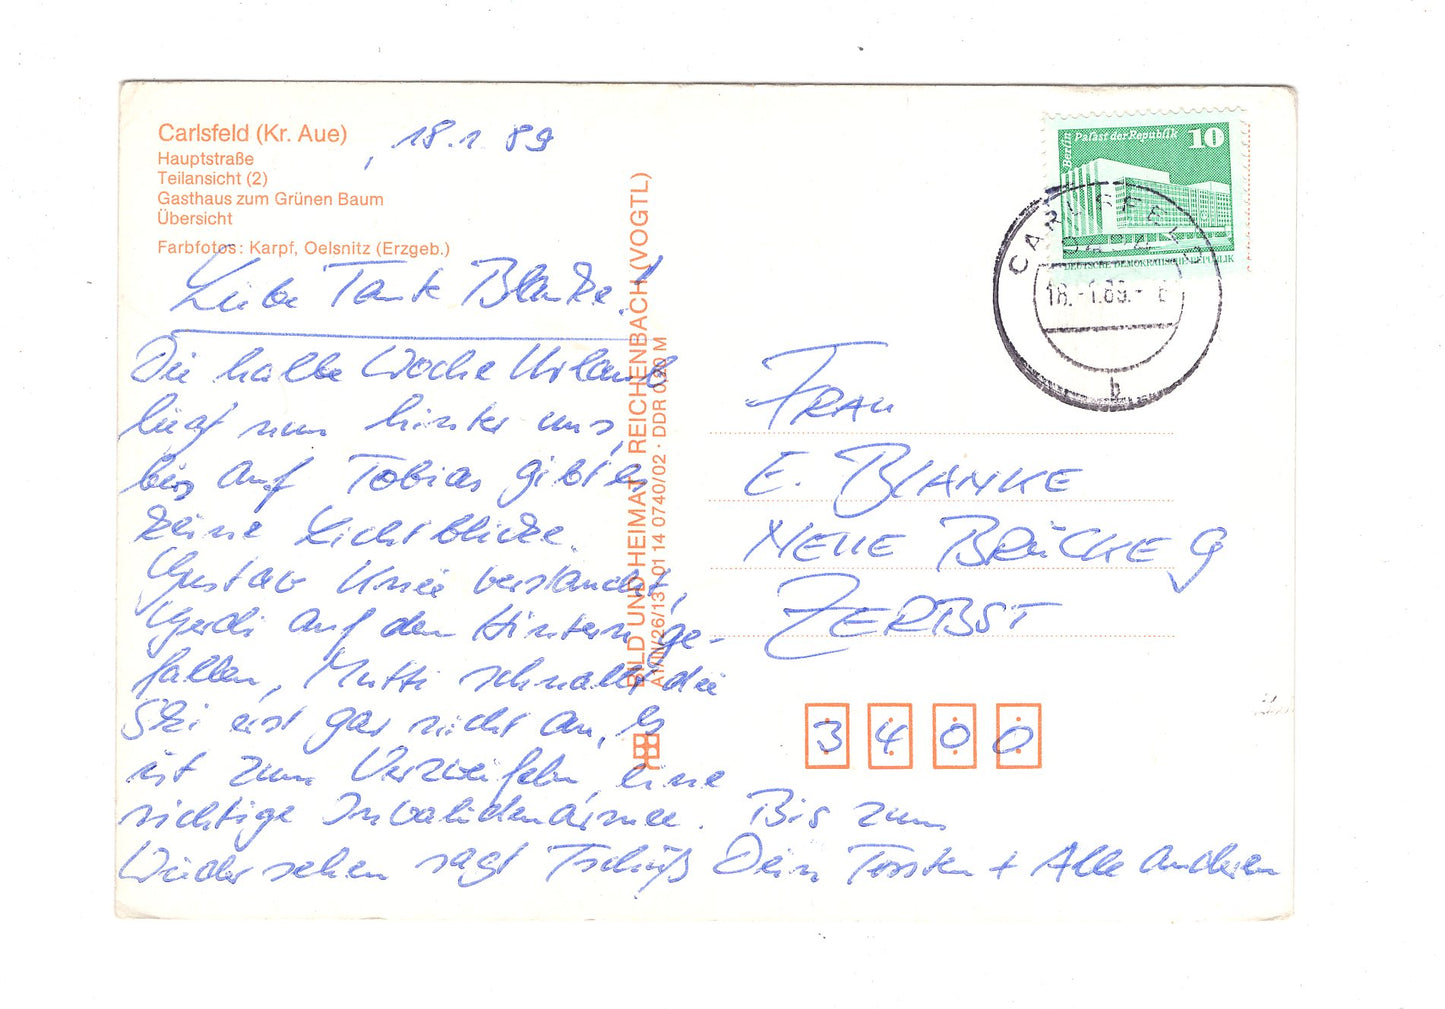 Carlsfeld (Kr. Aue)
Hauptstraße
Teilansicht (2)
Gasthaus zum Grünen Baum
Übersicht
Farbfotos: Karpf, Oelsnitz (Erzgeb.)
, 18.1.89
Liebe Tante Blanke!
Die halbe Woche Urlaub
liegt nun hinter uns,
bis auf Tobias gibt es
keine Lichtblicke.
Gustav Knie verstaucht,
Gerdi auf den Hintern ge-
fallen, Mutti schnallt die
Ski erst gar nicht an. Es
ist zum Verzweifeln, eine
richtige Invalidenarmee. Bis zum
Wiedersehen sagt Tschüß Dein Torsten + Alle Anderen
BILD UND HEIMAT REICHENBACH (VOGTL)
A1/IV/26/13 01 14 0740/02 · DDR 0,20 M
Berlin Palast der Republik 10
DEUTSCHE DEMOKRATISCHE REPUBLIK
CARLSFELD
18.-1.89.-
b
FRAU
E. BLANKE
NEUE BRÜCKE 9
ZERBST
3400